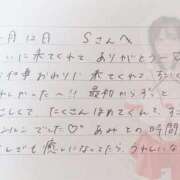 月12日 Sさんへ
いに来てくれてありがとう
おわりに来てくれて、す
かった〜!! 最初からずっと
しくて、たくさんほめてくれて、
でした♡ あみとの時間
しでも癒しになってたら、うれしいな